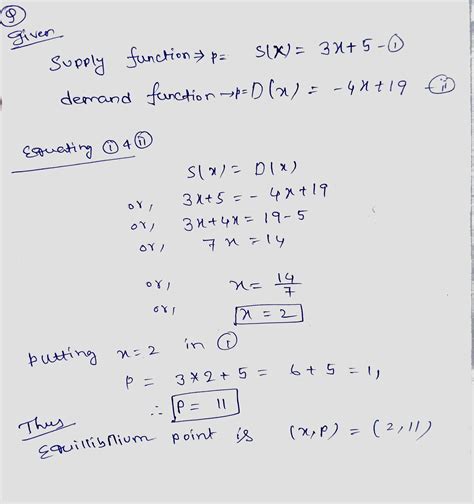 Q
Given
Supply function → p = S(x) = 3x+5 - ①
demand function → p = D(x) = -4x+19 - ⑪
Equating ① & ⑪
S(x) = D(x)
or, 3x+5 = -4x+19
or, 3x+4x = 19-5
or, 7x = 14
or, x = 14/7
or, x = 2
putting x=2 in ①
P = 3*2+5 = 6+5 = 11
∴ P = 11
Thus
Equillibrium point is (x,p) = (2,11)